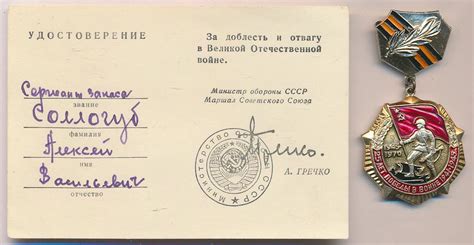 УДОСТОВЕРЕНИЕ
Сержант запаса
звание
Соллогуб
фамилия
Алексей
имя
Васильевич
отчество
За доблесть и отвагу
в Великой Отечественной
войне.
Министр обороны СССР
Маршал Советского Союза
А. ГРЕЧКО
Министерство
СССР
1945
1970